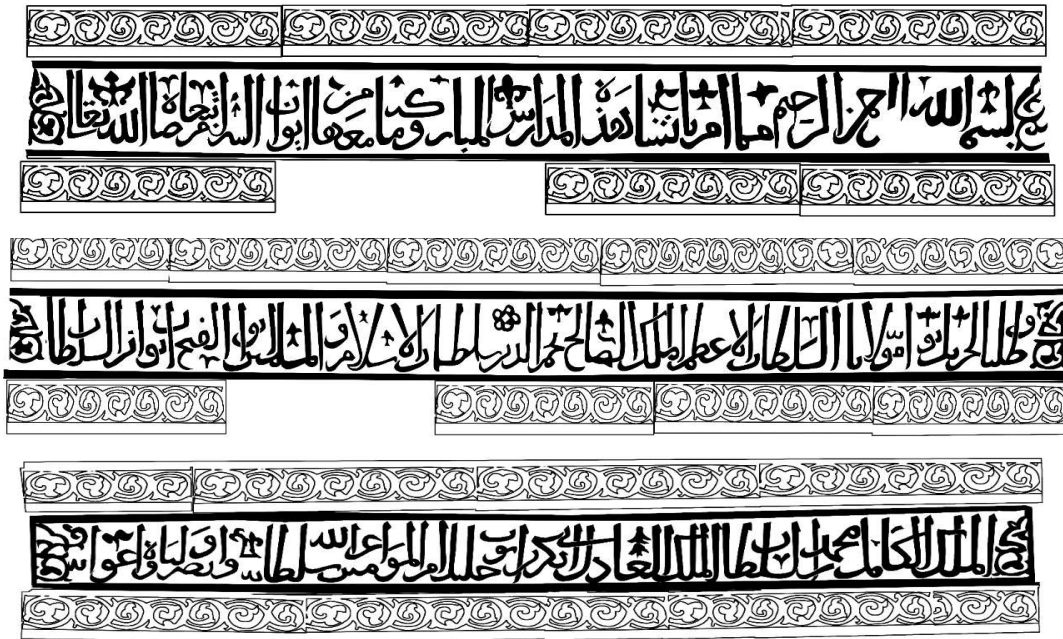 بسم الله الرحمن الرحيم مما امر بانشا هذه المدارس المباركة وما معها من ابواب مرضاة الله تعالى
وطلبا لجزيل ثوابه مولانا السلطان الاعظم الملك الصالح نجم الدين سلطان الاسلام والمسلمين ابو الفتح ايوب ابن السلطان
الملك الكامل محمد ابن السلطان الملك العادل ابي بكر ايوب خليل امير المؤمنين اعز الله سلطانه ونصر